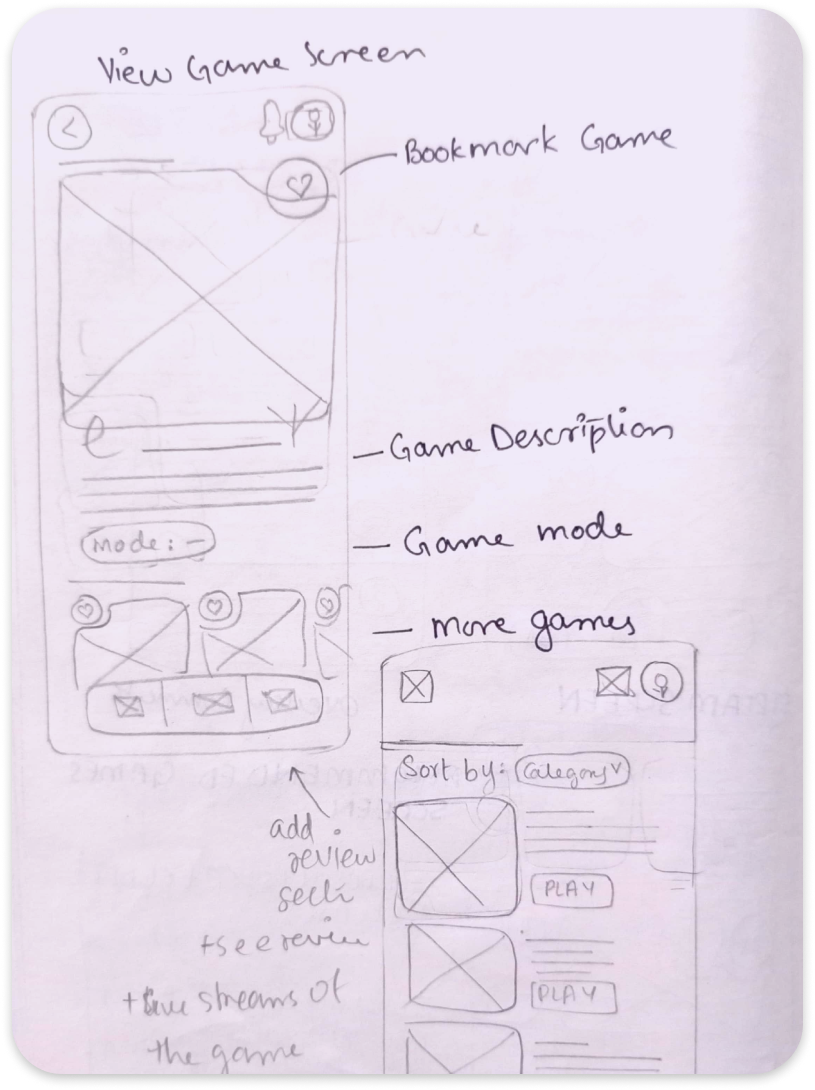 View Game Screen
Bookmark Game
Game Description
Mode: –
Game mode
more games
Sort by: Category
PLAY
PLAY
add
review
+ see review
+ live streams of
the game